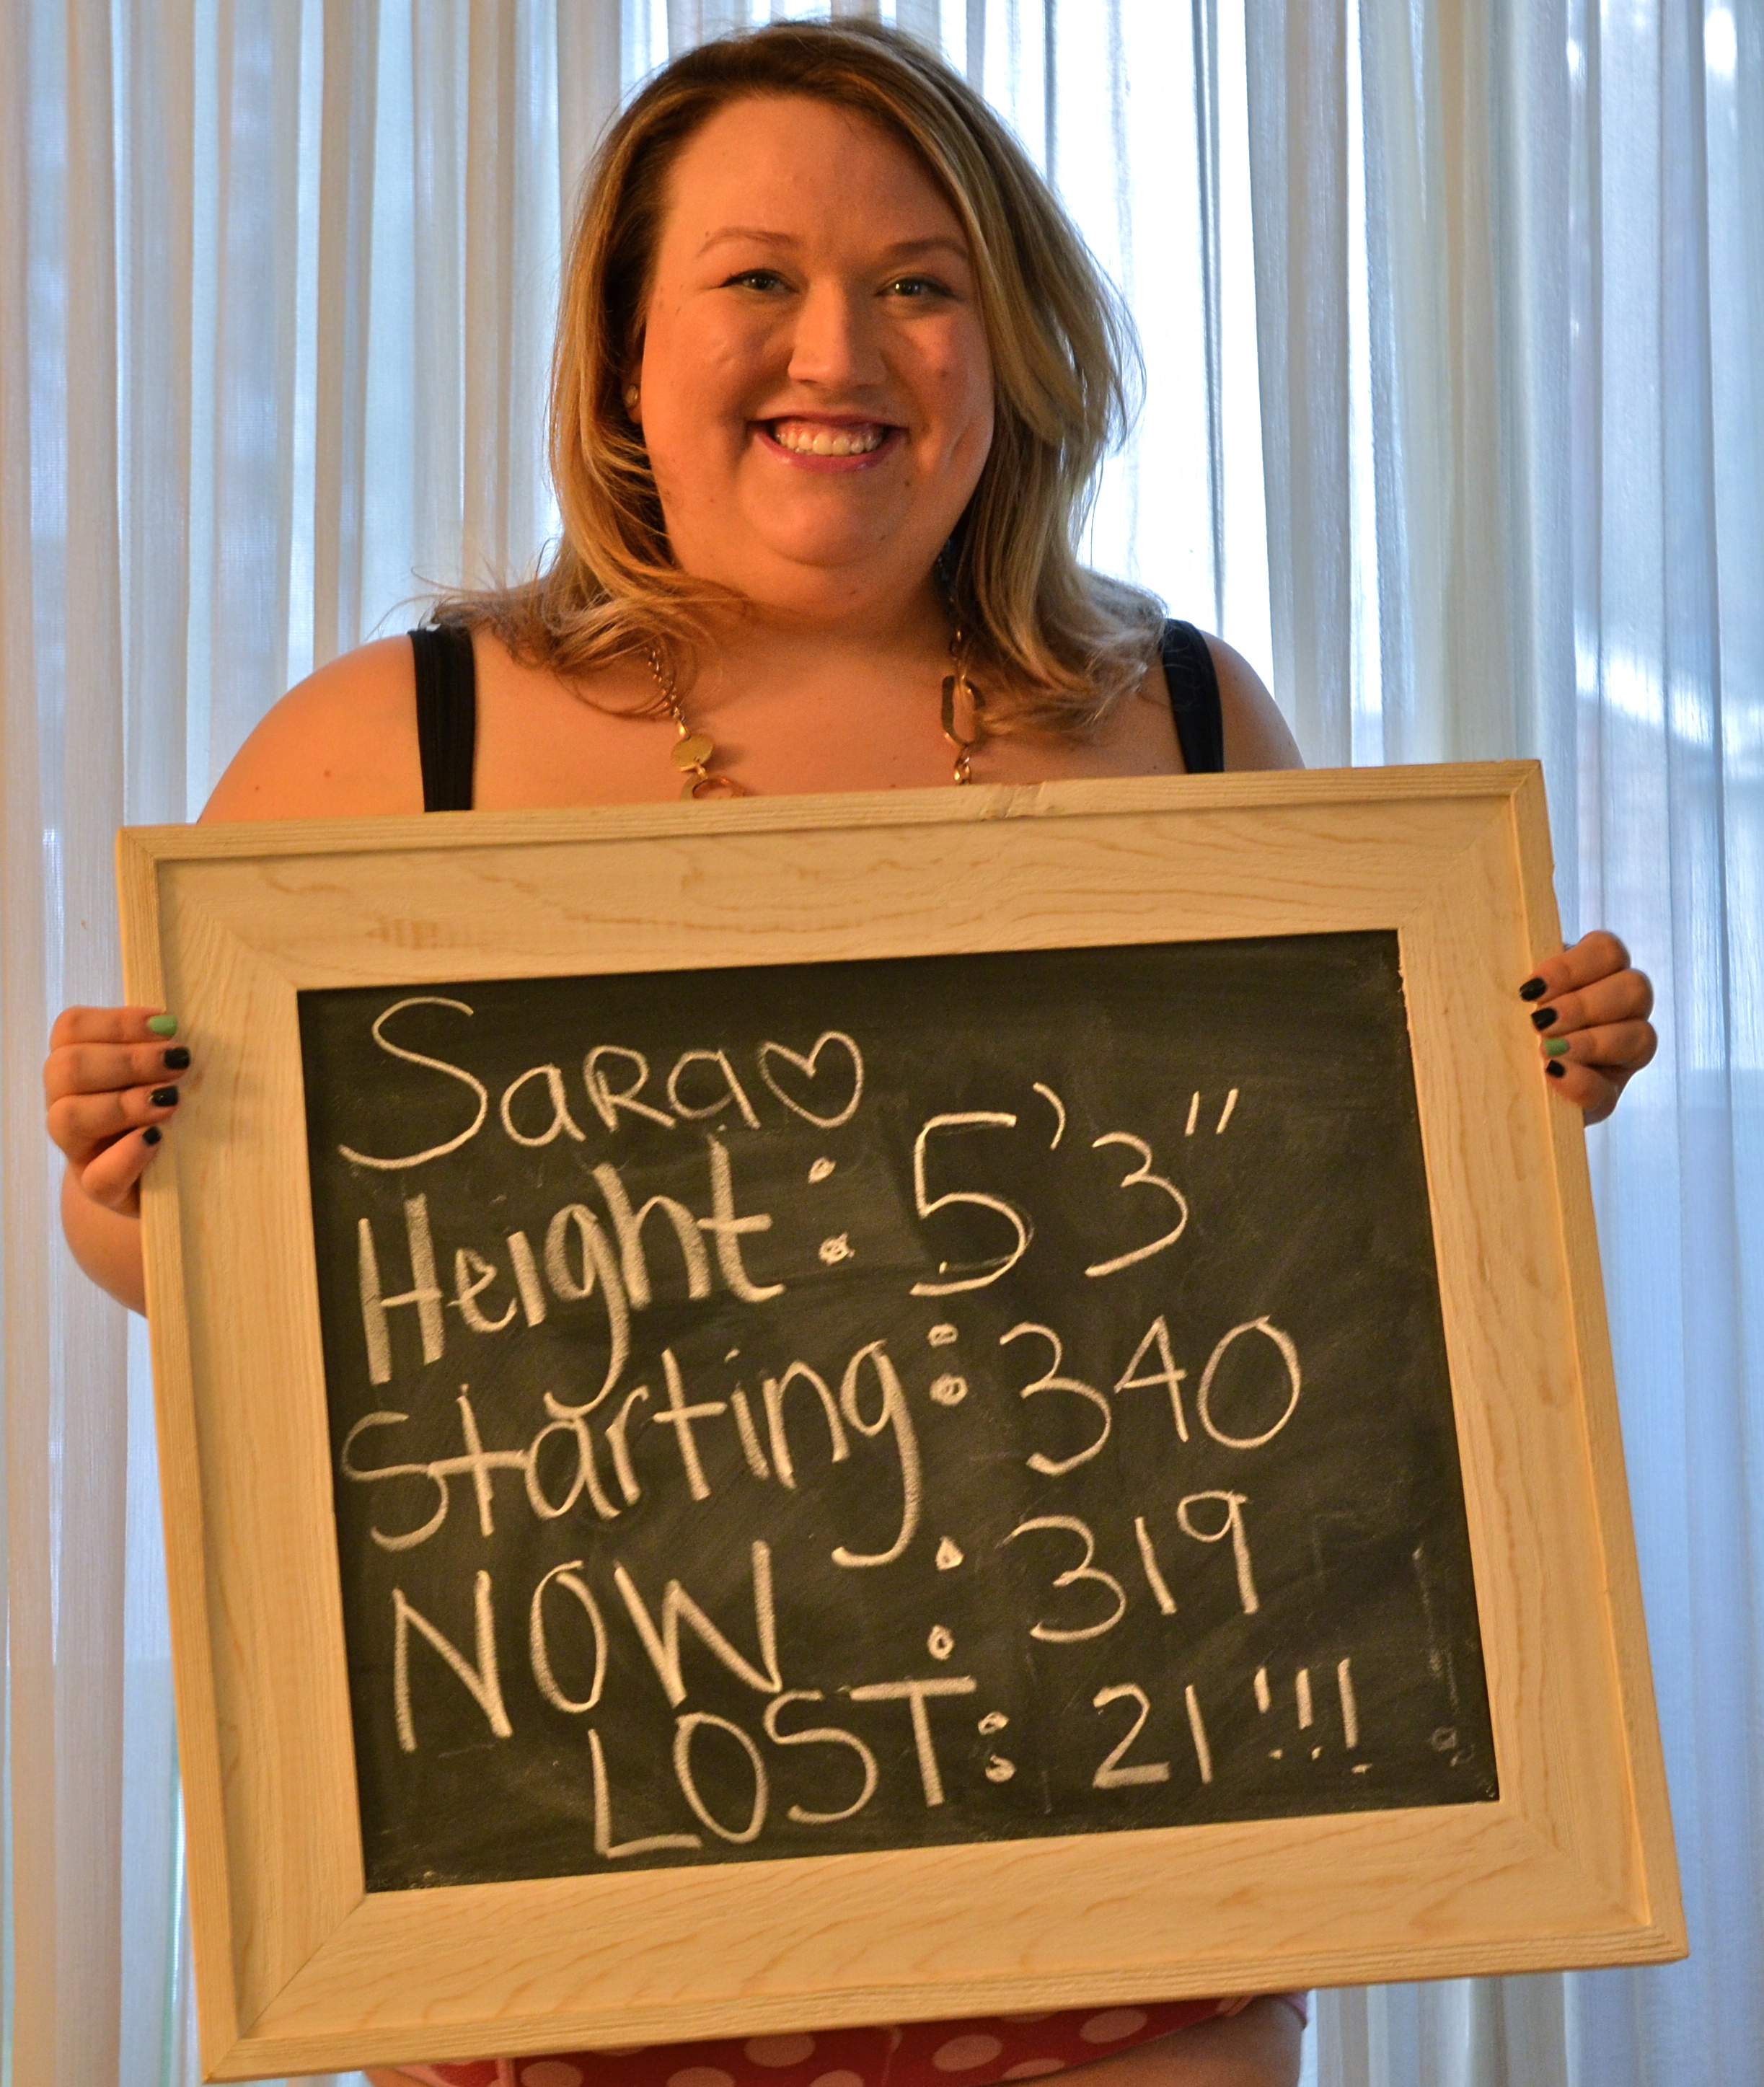 SaRa♡
Height: 5'3"
Starting: 340
NOW : 319
LOST: 21!!!